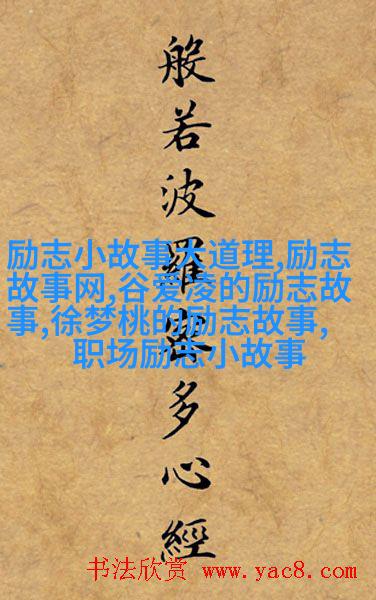 般若波羅蜜多心經
励志小故事大道理,励志
故事网,谷爱凌的励志故
事,徐梦桃的励志故事,
职场励志小故事
书法欣赏 www.yac8.com